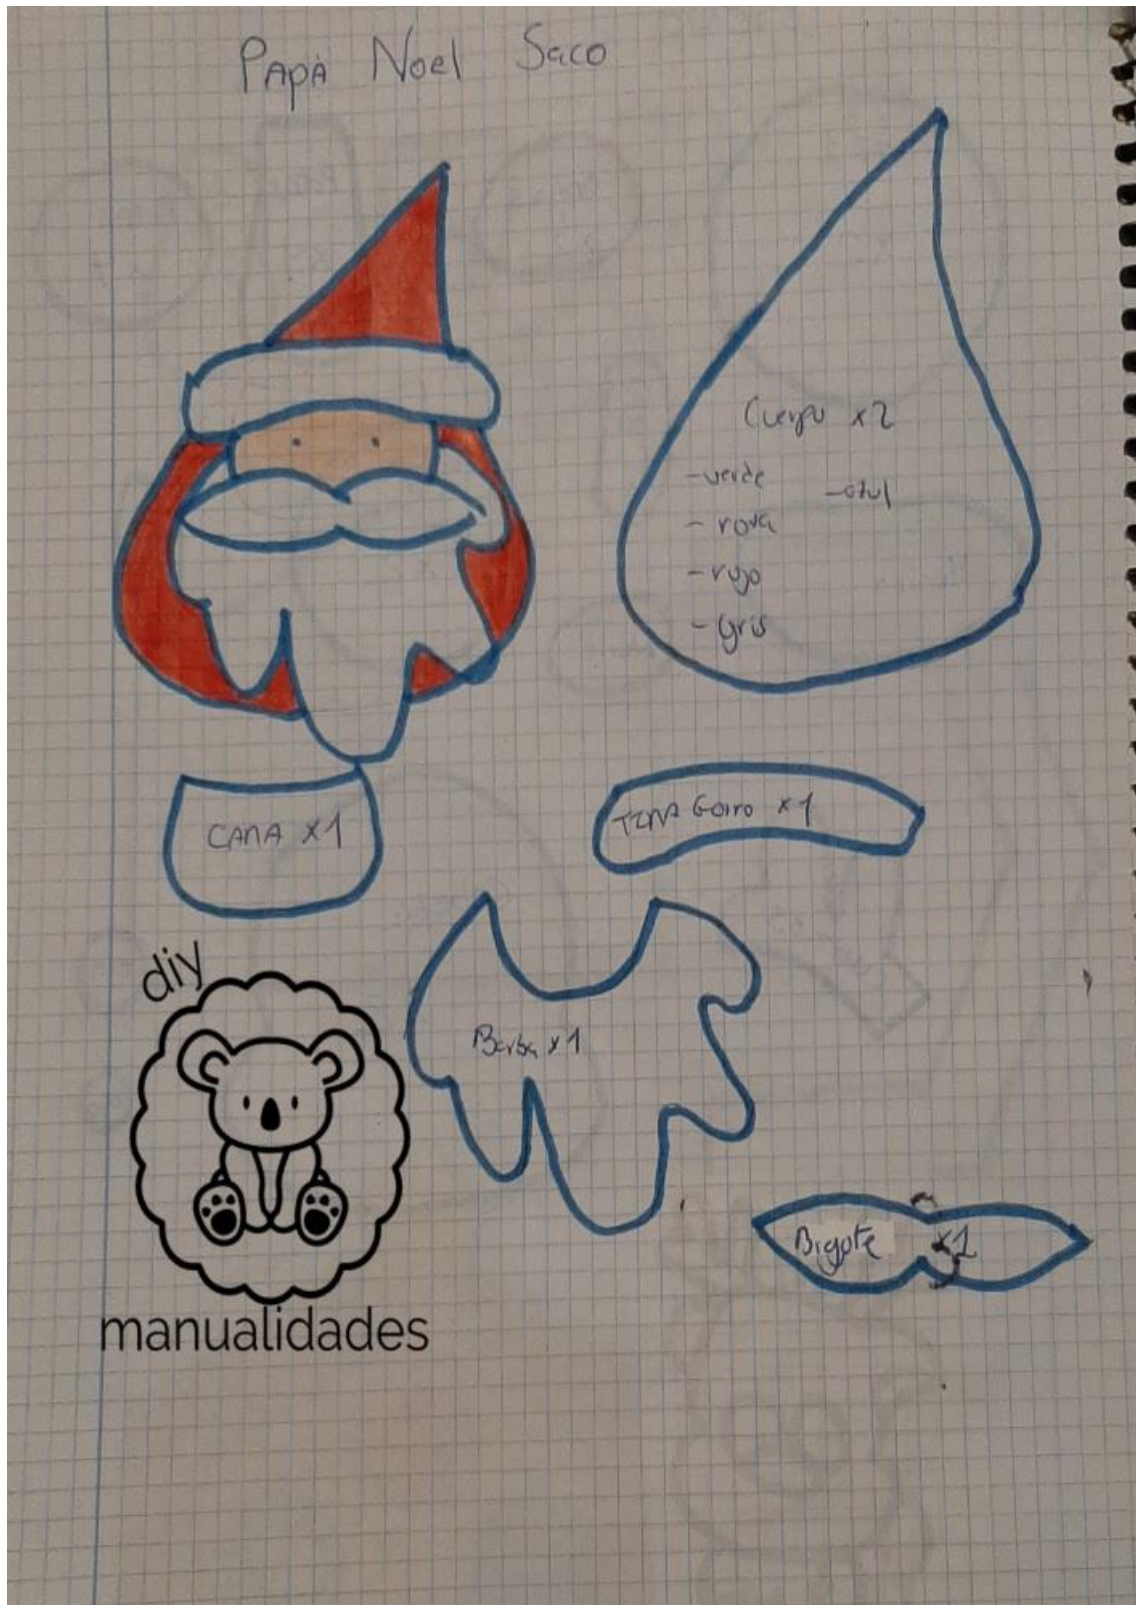 Papá Noel Saco
Cuerpo x2
-verde
-azul
- rosa
- rojo
- gris
CARA x1
TIRA Gorro x1
Barba x1
Bigote x1
diy
manualidades